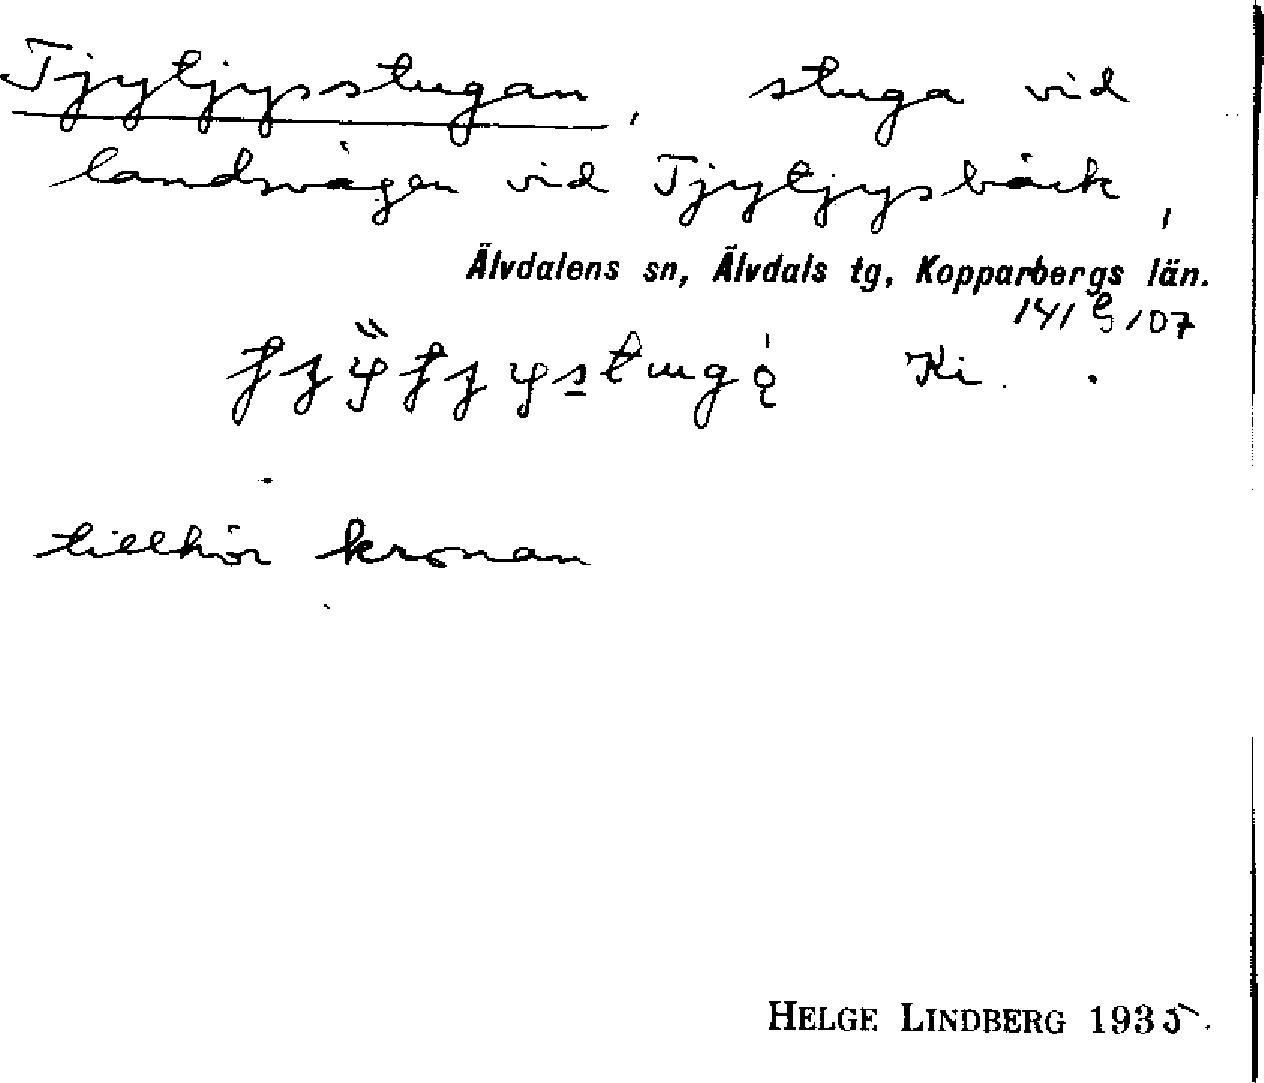 Tjytjysstugan, stuga vid
landsvägen vid Tjytjysbäck,
Älvdalens sn, Älvdals tg, Kopparbergs län.
141 e 107
Ki.
tillhör kronan
HELGE LINDBERG 1935.